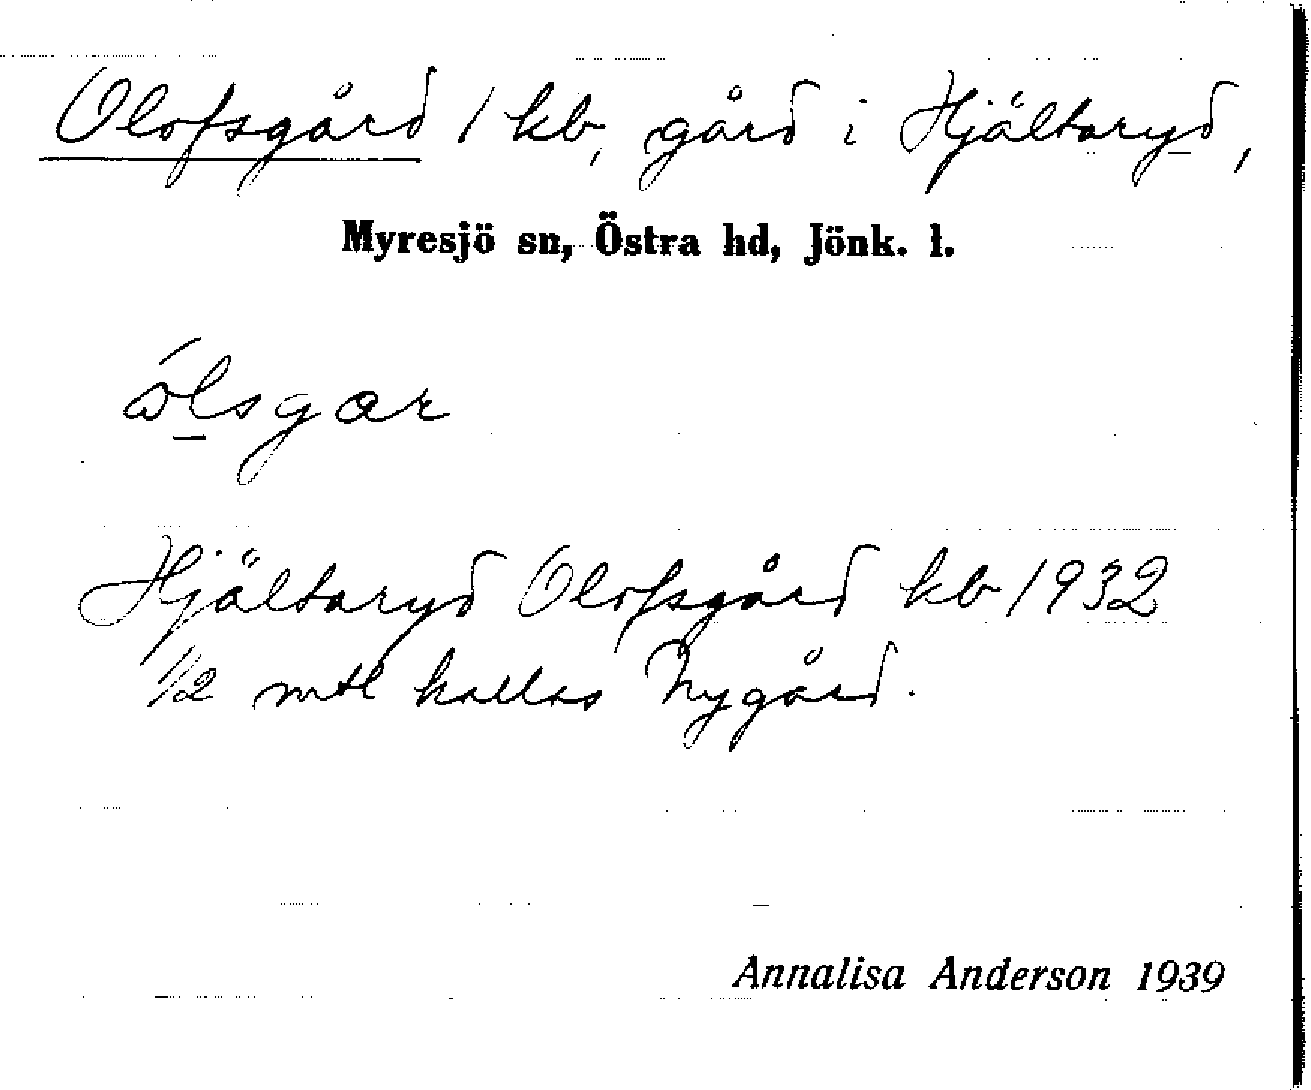 Olofsgård / kb, gård i Hjältaryd,
Myresjö sn, Östra hd, Jönk. l.
Hjältaryd Olofsgård kb 1932
1/2 mtl kallas Nygård.
Annalisa Anderson 1939